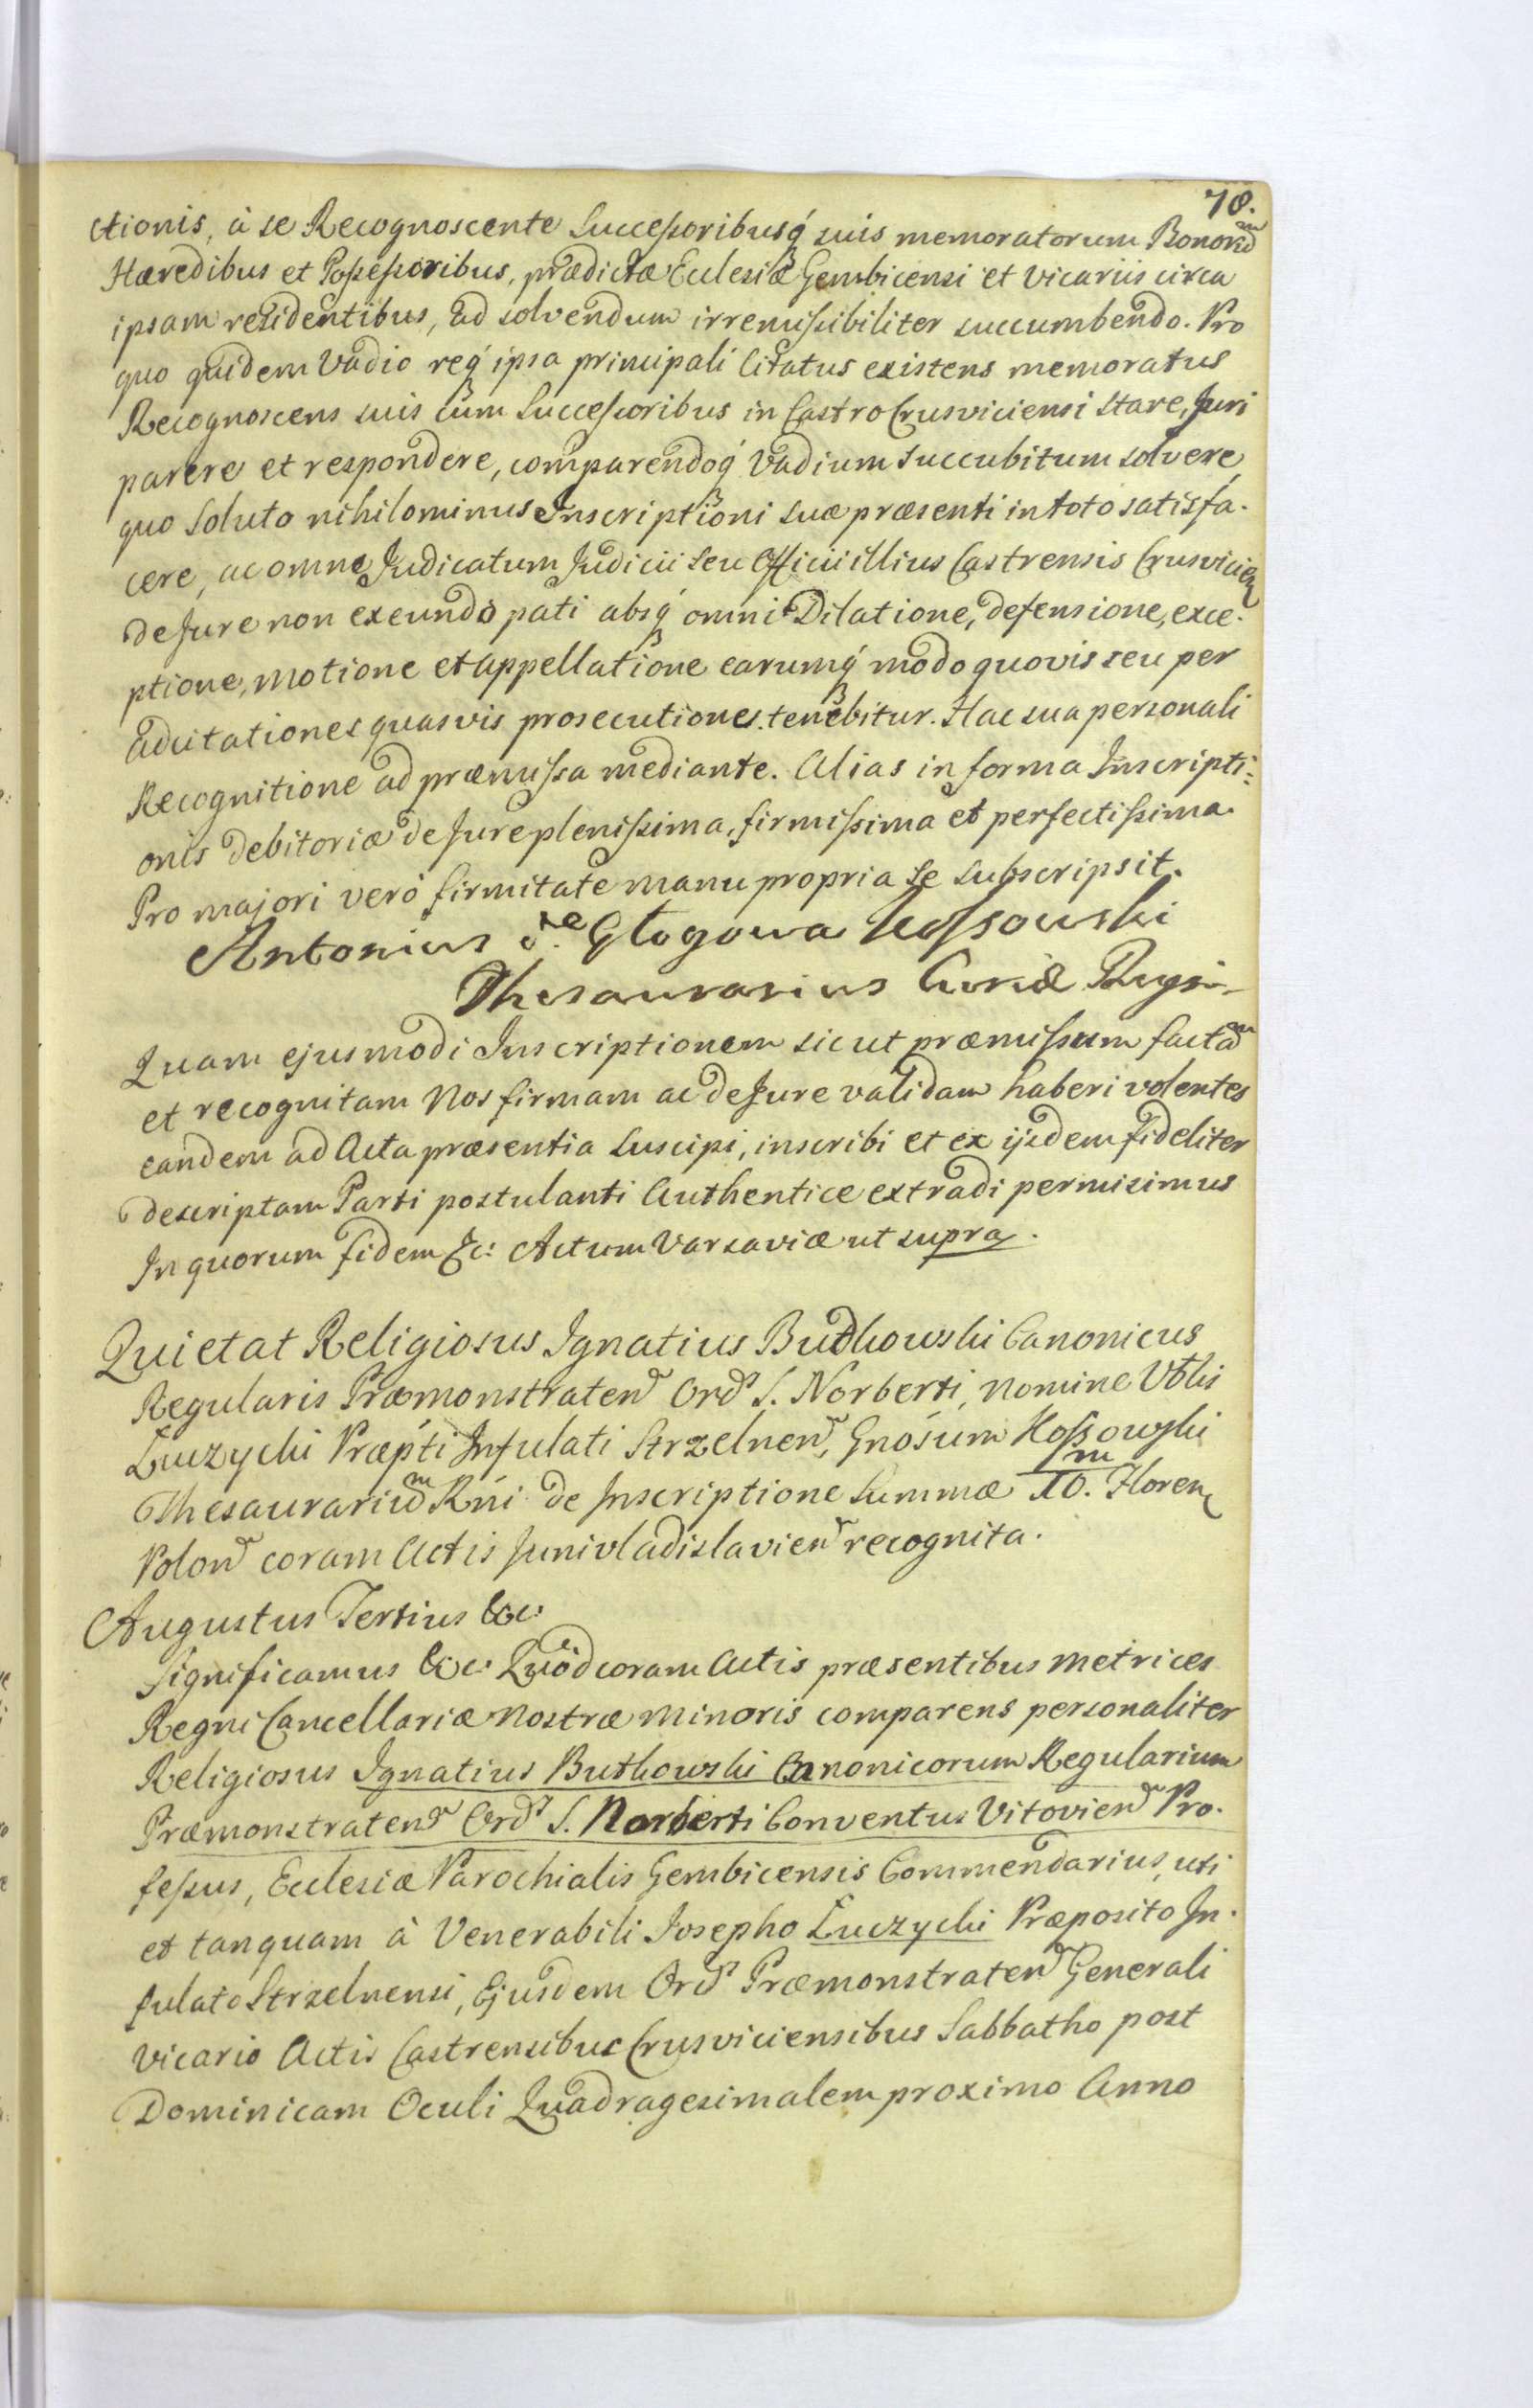 78.
ctionis, à se Recognoscente Successoribusq́ suis memoratorum Bonorũ
Hæredibus et Possessoribus, prædictæ Ecclesiæ Gembicensi et Vicariis circa
ipsam residentibus, ad solvendum irremissibiliter succumbendo. Pro
quo quidem Vadio req́ ipsa principali Citatus existens memoratus
Recognoscens suis cum Successoribus in Castro Crusviciensi stare, Juri
parere et respondere, comparendoq́ Vadium succubitum solvere,
quo soluto nihilominus Inscriptioni suæ præsenti in toto satisfa-
cere, ac omne Judicatum Judicii seu Officii illius Castrensis Crusvicien
de Jure non exeundo pati absq́ omni Dilatione, defensione, exce-
ptione, motione et appellatione earumq́ modo quovis seu per
adcitationes quasvis prosecutiones tenebitur. Hac sua personali
Recognitione ad præmissa mediante. Alias in forma Inscripti-
onis debitoriæ de Jure plenissima, firmissima et perfectissima.
Pro majori verò firmitate manu propria se subscripsit.
Antonius de Głogowa Kossowski
Thesaurarius Curiæ Regni
Quam ejusmodi Inscriptionem sicut præmissum factam
et recognitam Nos firmam ac de Jure validam haberi volentes
eandem ad Acta præsentia suscipi, inscribi et ex ijsdem fideliter
descriptam Parti postulanti Authentice extradi permisimus
In quorum fidem &c: Actum Varsaviæ ut supra.
Quietat Religiosus Ignatius Buthowski Canonicus
Regularis Præmonstraten Ord S. Norberti, nomine Vblis
Łuczycki Præpti Infulati Strzelnen, Gnosum Kossowski
Thesaurarium Rńi de Inscriptione Summæ X̅O̅ᵐ. Floren
Polon coram Actis Junivladislavien recognita.
Augustus Tertius &c:
Significamus &c: Quod coram Actis præsentibus Metrices
Regni Cancellariæ Nostræ Minoris comparens personaliter
Religiosus Ignatius Buthowski Canonicorum Regularium
Præmonstraten Ord S. Norberti Conventus Vitovien Pro-
fessus, Ecclesiæ Parochialis Gembicensis Commendarius, uti
et tanquam à Venerabili Josepho Łuczycki Præposito In-
fulato Strzelnensi, Ejusdem Ord Præmonstraten Generali
Vicario Actis Castrensibus Crusviciensibus Sabbatho post
Dominicam Oculi Quadragesimalem proximo Anno